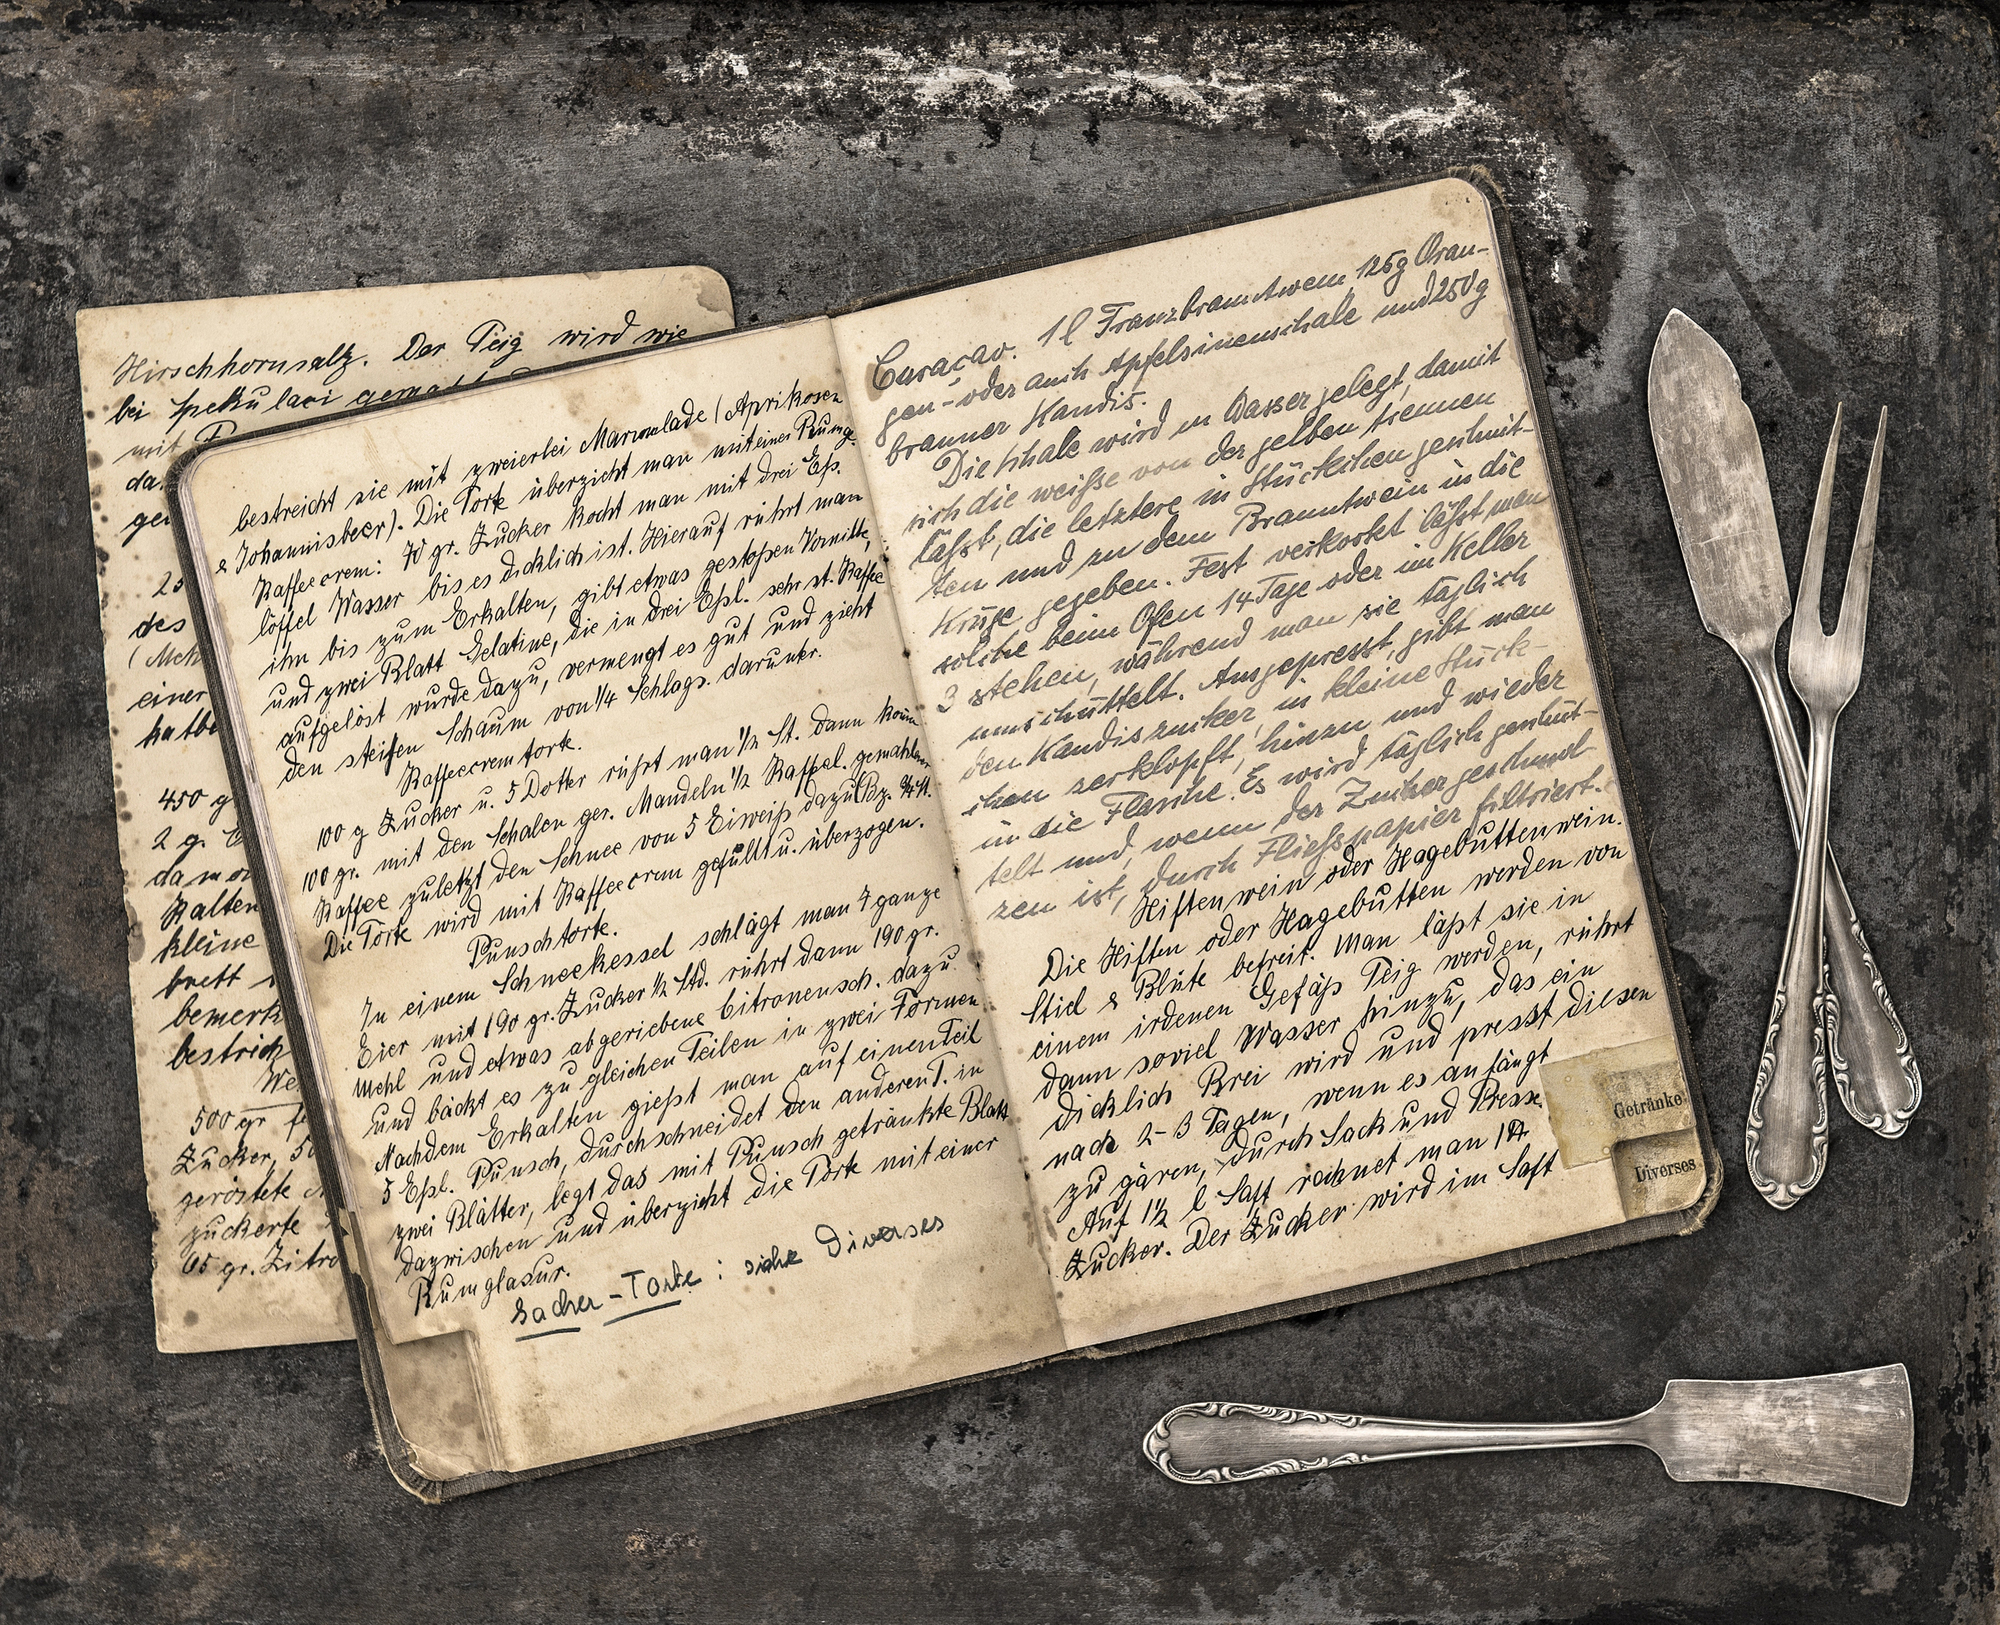 Hirschhornsalz. Der Teig wird wie
bei Spekulaci
mit
da
ge
25
des
(Meh
einer
450 g
2 g.
Kalten
kleine
brett
bemerk
bestrich
500 gr
Zucker, 50
geröstete
zuckerte
65 gr. Zitro
bestreicht sie mit zweierlei Marmelade (Aprikosen
& Johannisbeer). Die Torte überzieht man mit einer Rumg.
Kaffeecrem: 70 gr. Zucker kocht man mit drei Eß.
löffel Wasser bis es dicklich ist. Hierauf rührt man
ihn bis zum Erkalten, gibt etwas gestoßen Vanille,
und zwei Blatt Gelatine, die in drei Eßl. sehr st. Kaffee
aufgelöst wurde dazu, vermengt es gut und zieht
den steifen Schaum von ¼ Schlags. darunter.
Kaffeecremtorte.
100 g Zucker u. 5 Dotter rührt man ½ St. dann komm
100 gr. mit den Schalen ger. Mandeln ½ Kaffel. gemahlen
Kaffee zuletzt den Schnee von 5 Eiweiß dazu
Die Torte wird mit Kaffeecrem gefüllt u. überzogen.
Punschtorte.
In einem Schneekessel schlägt man 7 ganze
Eier mit 190 gr. Zucker ½ Std. rührt dann 190 gr.
Mehl und etwas abgeriebene Citronensch. dazu
und bäckt es zu gleichen Teilen in zwei Formen
Nachdem Erkalten gießt man auf einen Teil
5 Eßl. Punsch, durchschneidet den anderen T. in
zwei Blätter, legt das mit Punsch getränkte Blatt
dazwischen und überzieht die Torte mit einer
Rumglasur.
Sacher-Torte: siehe Diverses
Curacao. 1 l Franzbranntwein, 125g Oran-
gen- oder auch Apfelsinenschale und 250g
brauner Kandis.
Die Schale wird in Wasser gelegt, damit
sich die weiße von der gelben trennen
läßt, die letztere in Stückchen geschnit-
ten und zu dem Branntwein in die
Kruge gegeben. Fest verkorkt läßt man
solche beim Ofen 14 Tage oder im Keller
3 stehen, während man sie täglich
umschüttelt. Ausgepresst, gibt man
den Kandiszucker, in kleine Stück-
chen zerklopft, hinzu und wieder
in die Flasche. Es wird täglich geschüt-
telt und, wenn der Zucker geschmol-
zen ist, durch Fliesspapier filtriert.
Hiftenwein oder Hagebuttenwein.
Die Hiften oder Hagebutten werden von
Stiel & Blüte befreit. Man läßt sie in
einem irdenen Gefäß Teig werden, rührt
dann soviel Wasser hinzu, das ein
dicklich Brei wird und presst diesen
nach 2-3 Tagen, wenn es anfängt
zu gären, durch Sack und Presse
Auf 1½ l Saft rechnet man 1 ℔
Zucker. Der Zucker wird im Saft
Getränke
Diverses